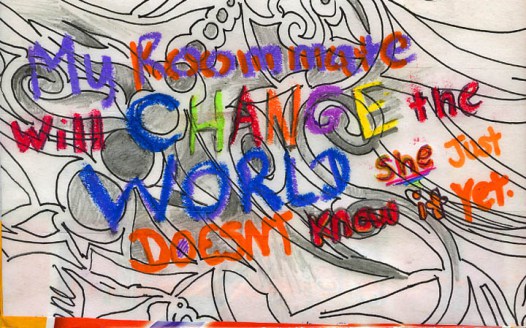 My Roommate
will CHANGE the
WORLD she Just
DOESNT know it Yet.